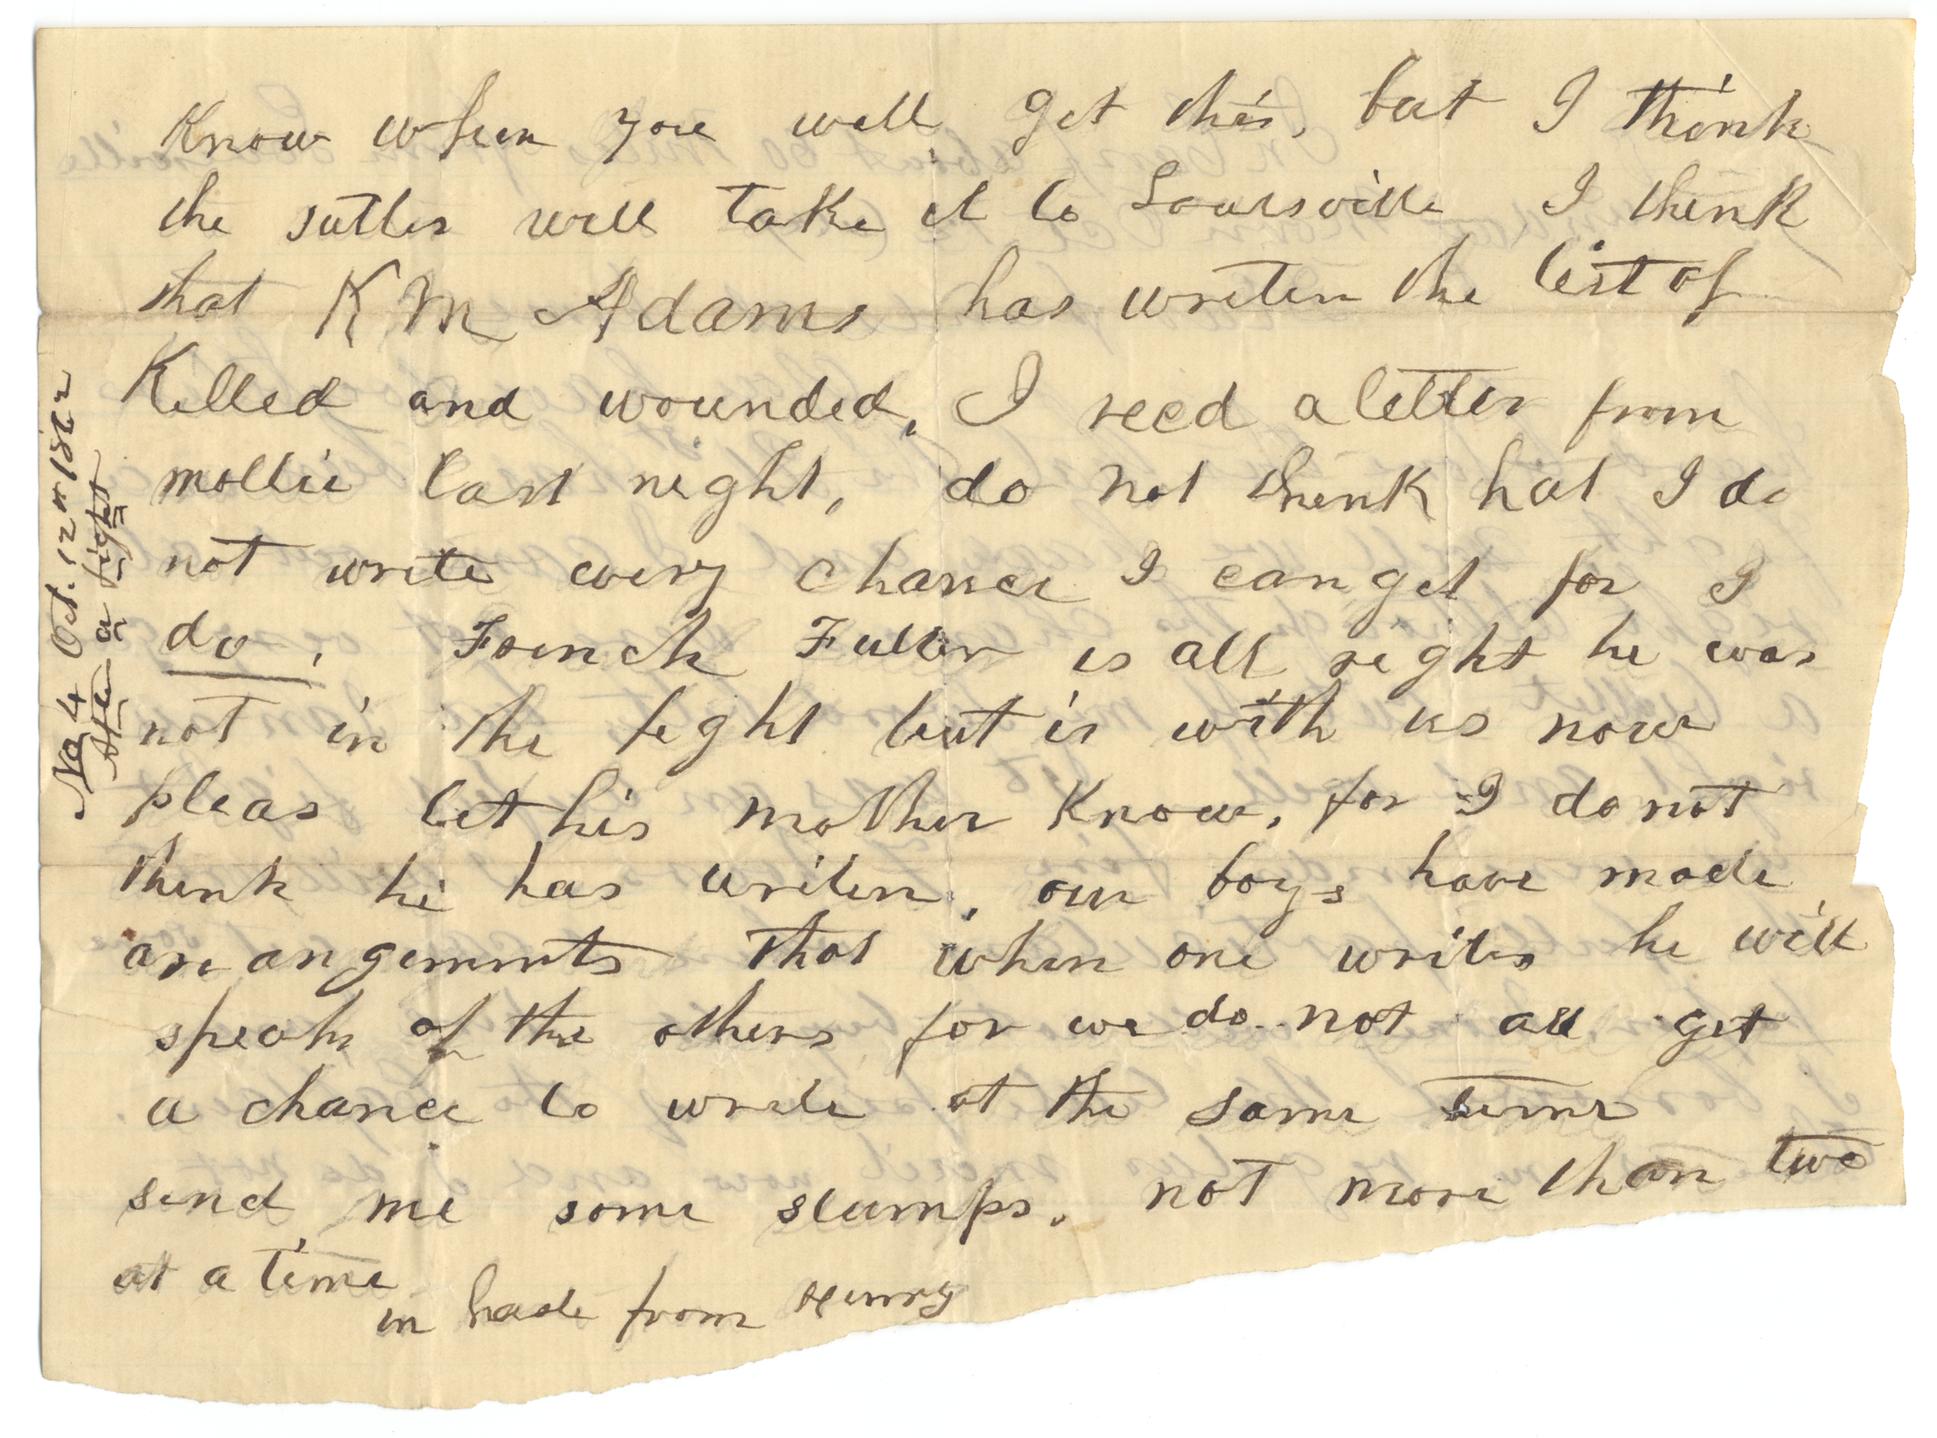 Know when you will get this, but I think
the sutler will take it to Louisville I think
that K M Adams has writen the list of
Killed and wounded, I recd a letter from
mollie last night, do not think hat I do
not write every chance I can get for I
do. French Fuller is all right he was
not in the fight but is with us now
pleas let his mother Know, for I do not
think he has writen. our boys have made
arrangements that when one writes he will
speak of the others for we do not all get
a chance to write at the same time
send me some stamps. not more than two
at a time
in haste from Henry
No 4 Oct. 12th 1862
After a fight